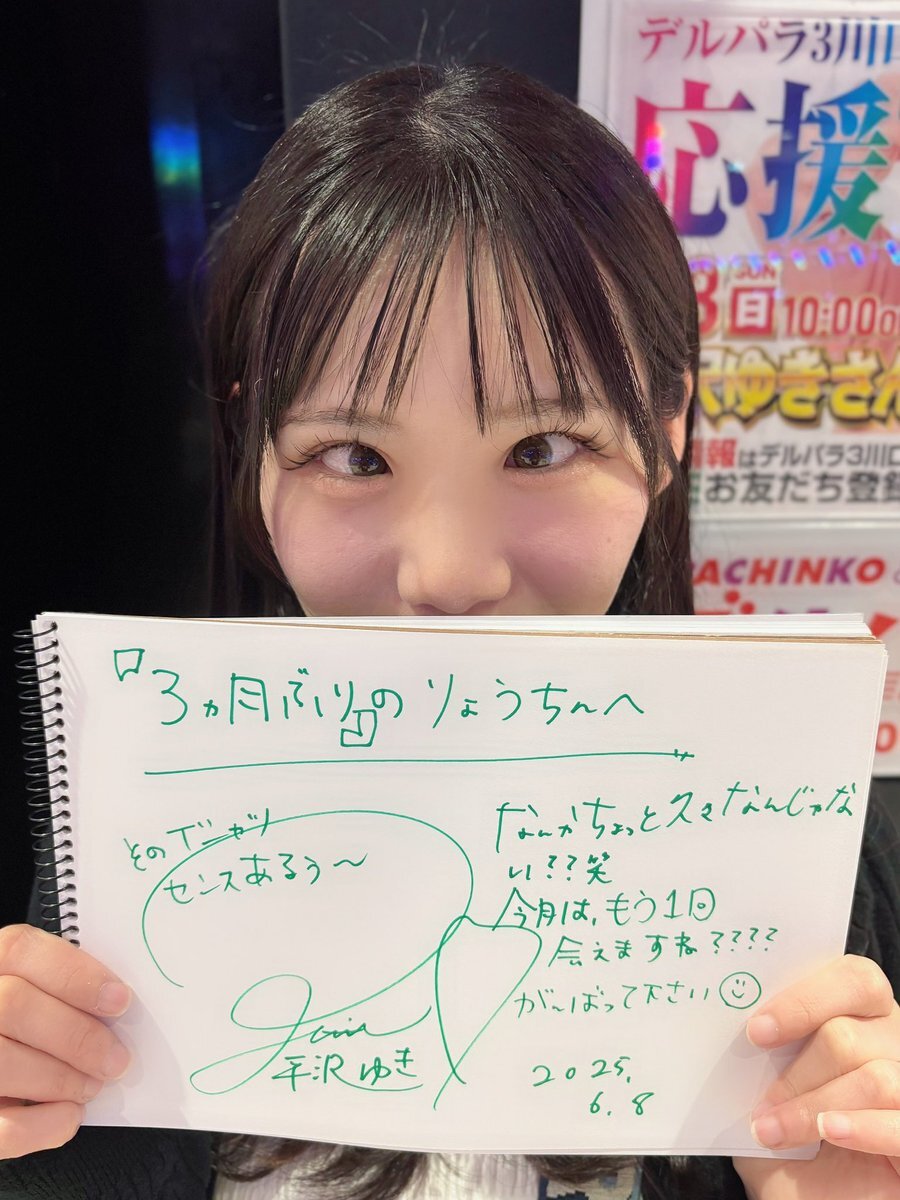 デルパラ3川口
応援
8日 SUN 10:00
ゆきさん
報はデルパラ3川口
お友だち登録
PACHINKO
『3ヵ月ぶり』の りょうちんへ
そのTシャツ
センスあるぅ〜
なんかちょっと久々なんじゃな
い??笑
今月は、もう1回
会えますね????
がんばって下さい
平沢ゆき
2025.
6.8